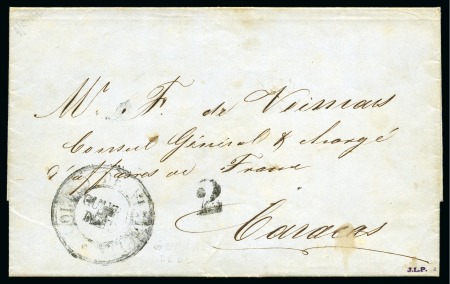 Mr. F. de Veimars
Consul Général & chargé
d'affaires de France
2
Caracas
J.L.P.